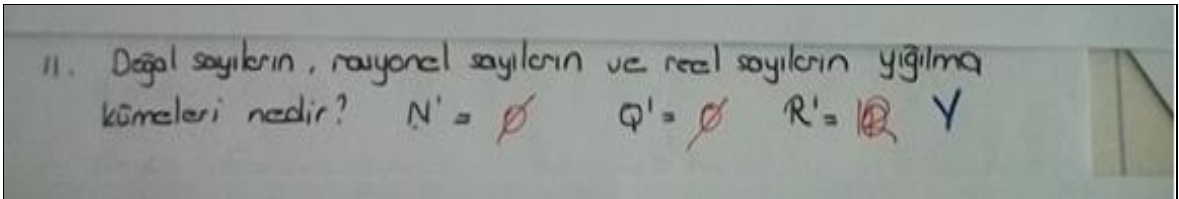 11. Doğal sayıların, rasyonel sayıların ve reel sayıların yığılma
kümeleri nedir? N' = ∅ Q' = ∅ R' = ℝ Y